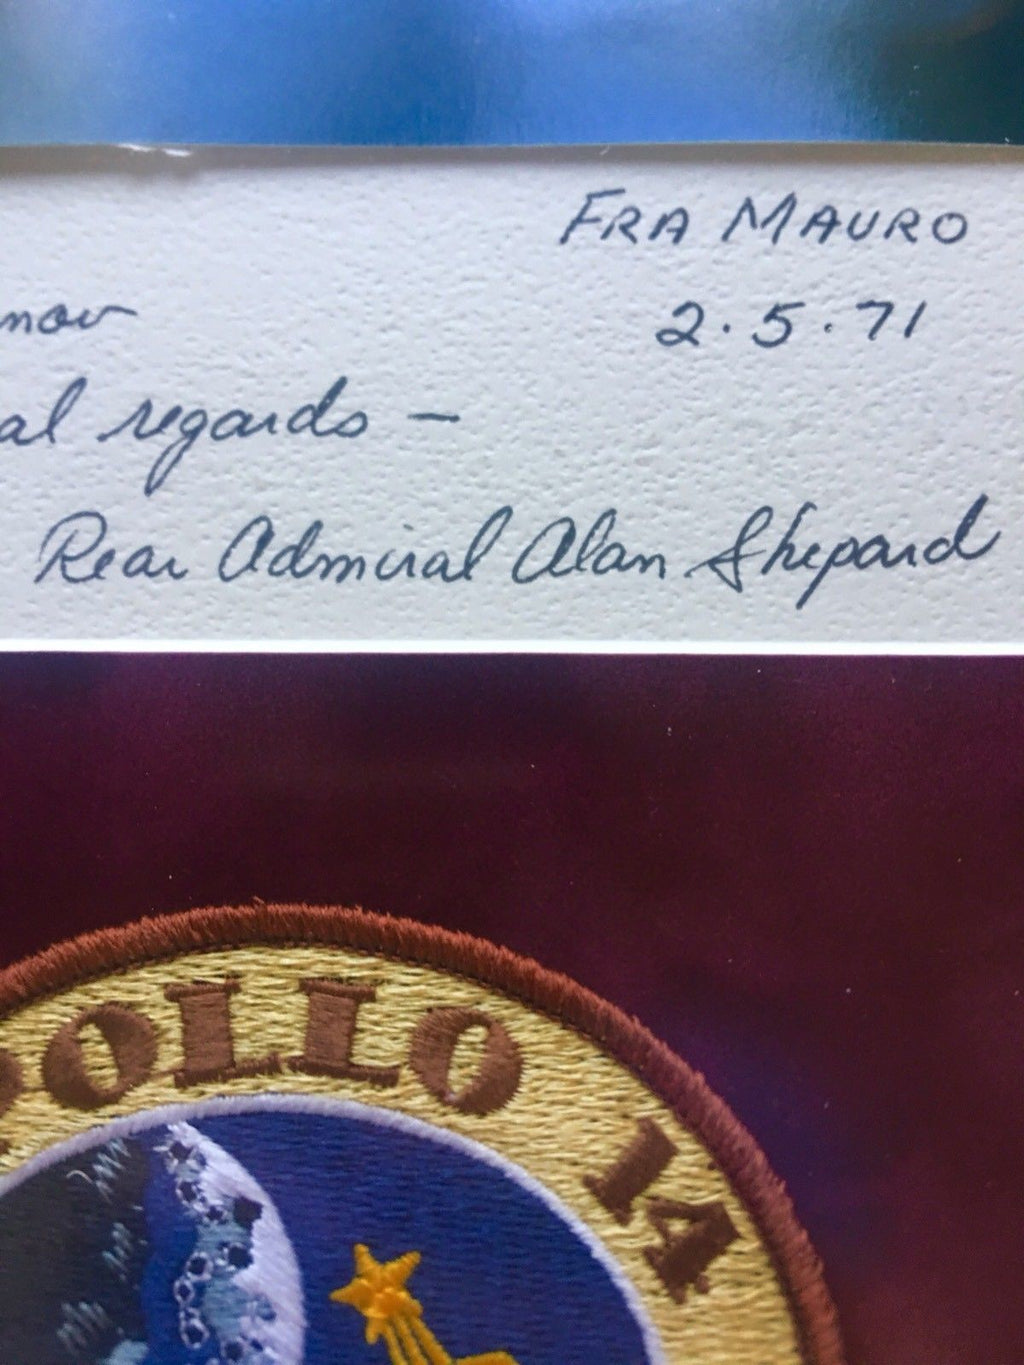 FRA MAURO
2.5.71
regards –
Rear Admiral Alan Shepard
APOLLO 14